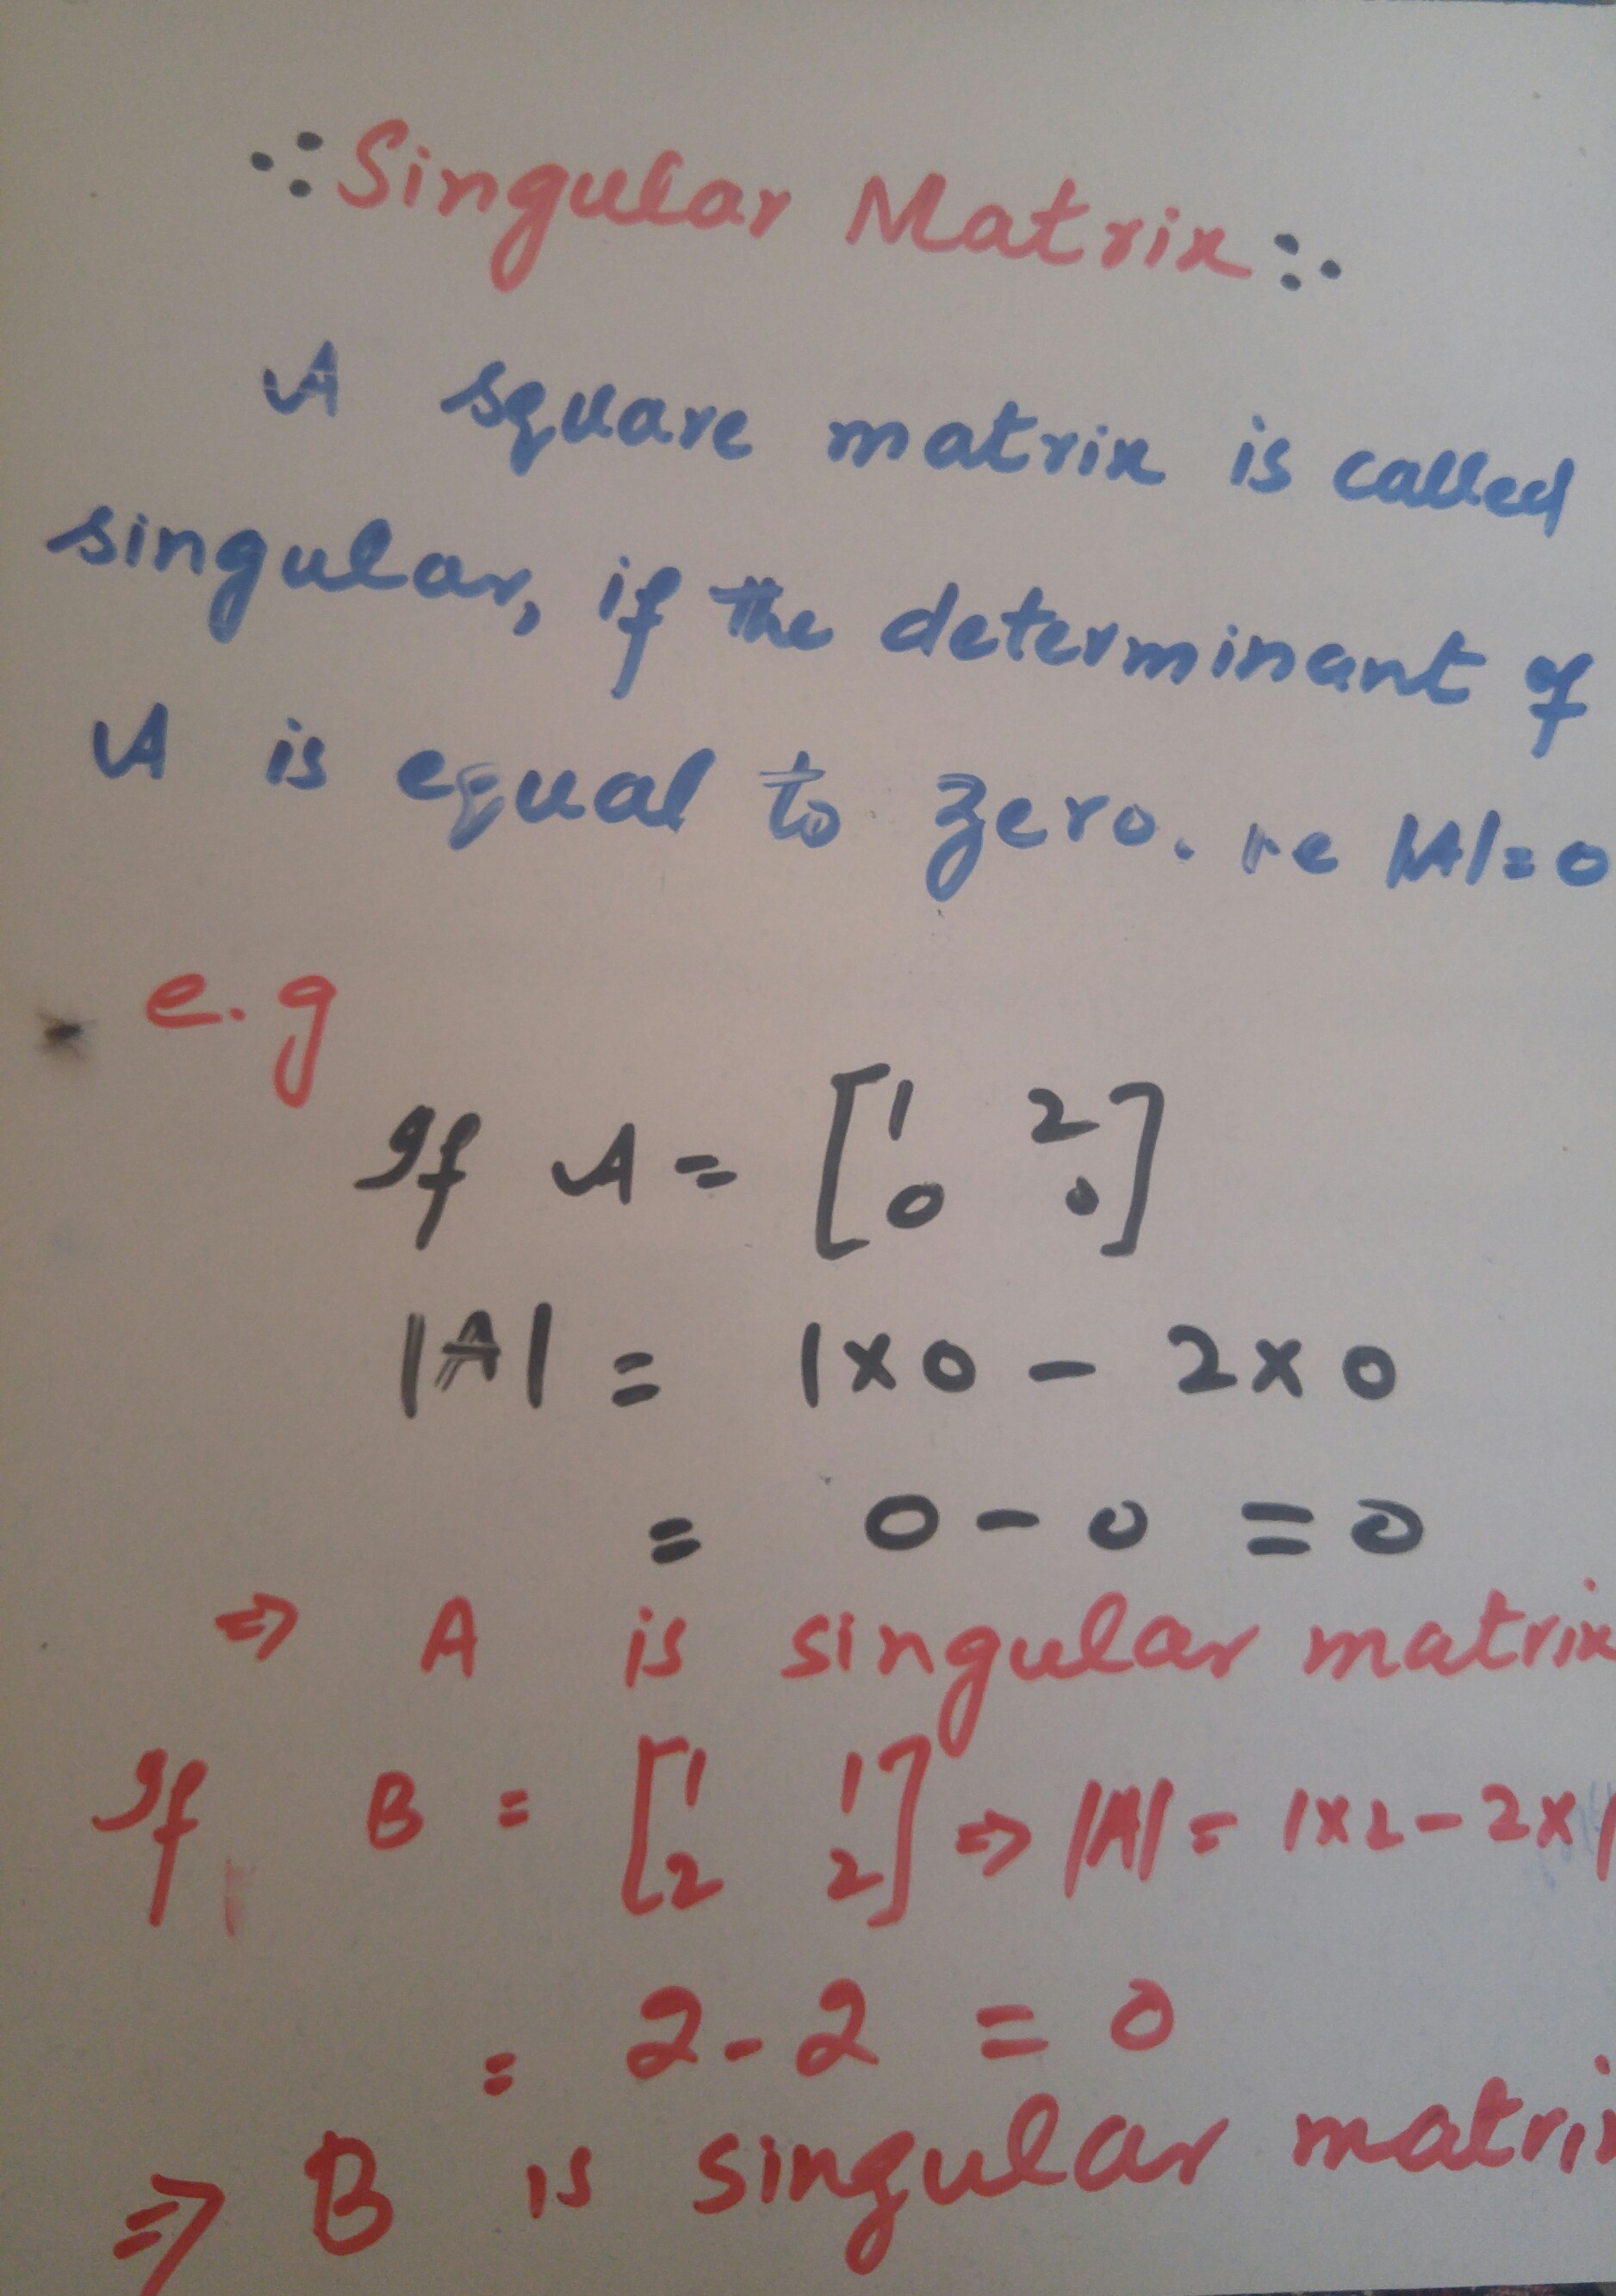 ·:Singular Matrix:·
A square matrix is called
singular, if the determinant of
A is equal to zero. ie |A|=0
e.g
If A = [1 2
0 0]
|A| = 1×0 - 2×0
= 0-0 = 0
⇒ A is singular matrix
If B = [1 1
2 2] ⇒ |A| = 1×2-2×1
= 2-2 = 0
⇒ B is singular matri